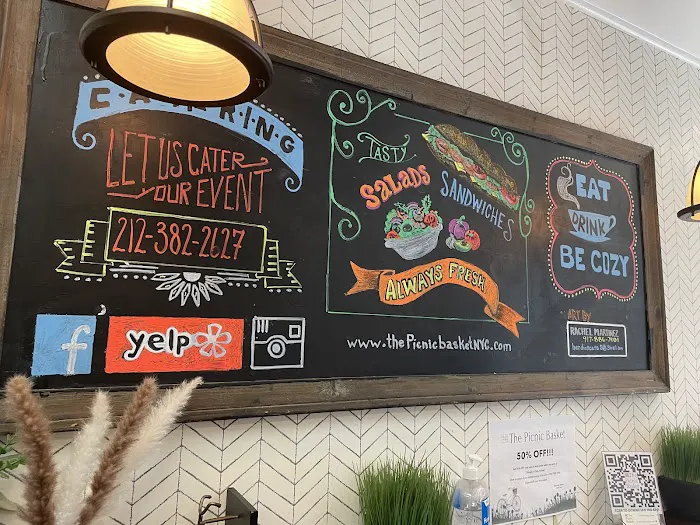 LET US CATER
YOUR EVENT
212-382-2627
f
yelp
TASTY
SALADS
SANDWICHES
ALWAYS FRESH
www.thePicnicbasketNYC.com
EAT
DRINK
BE COZY
ART BY
RACHEL MARTINEZ
The Picnic Basket
50% OFF!!!